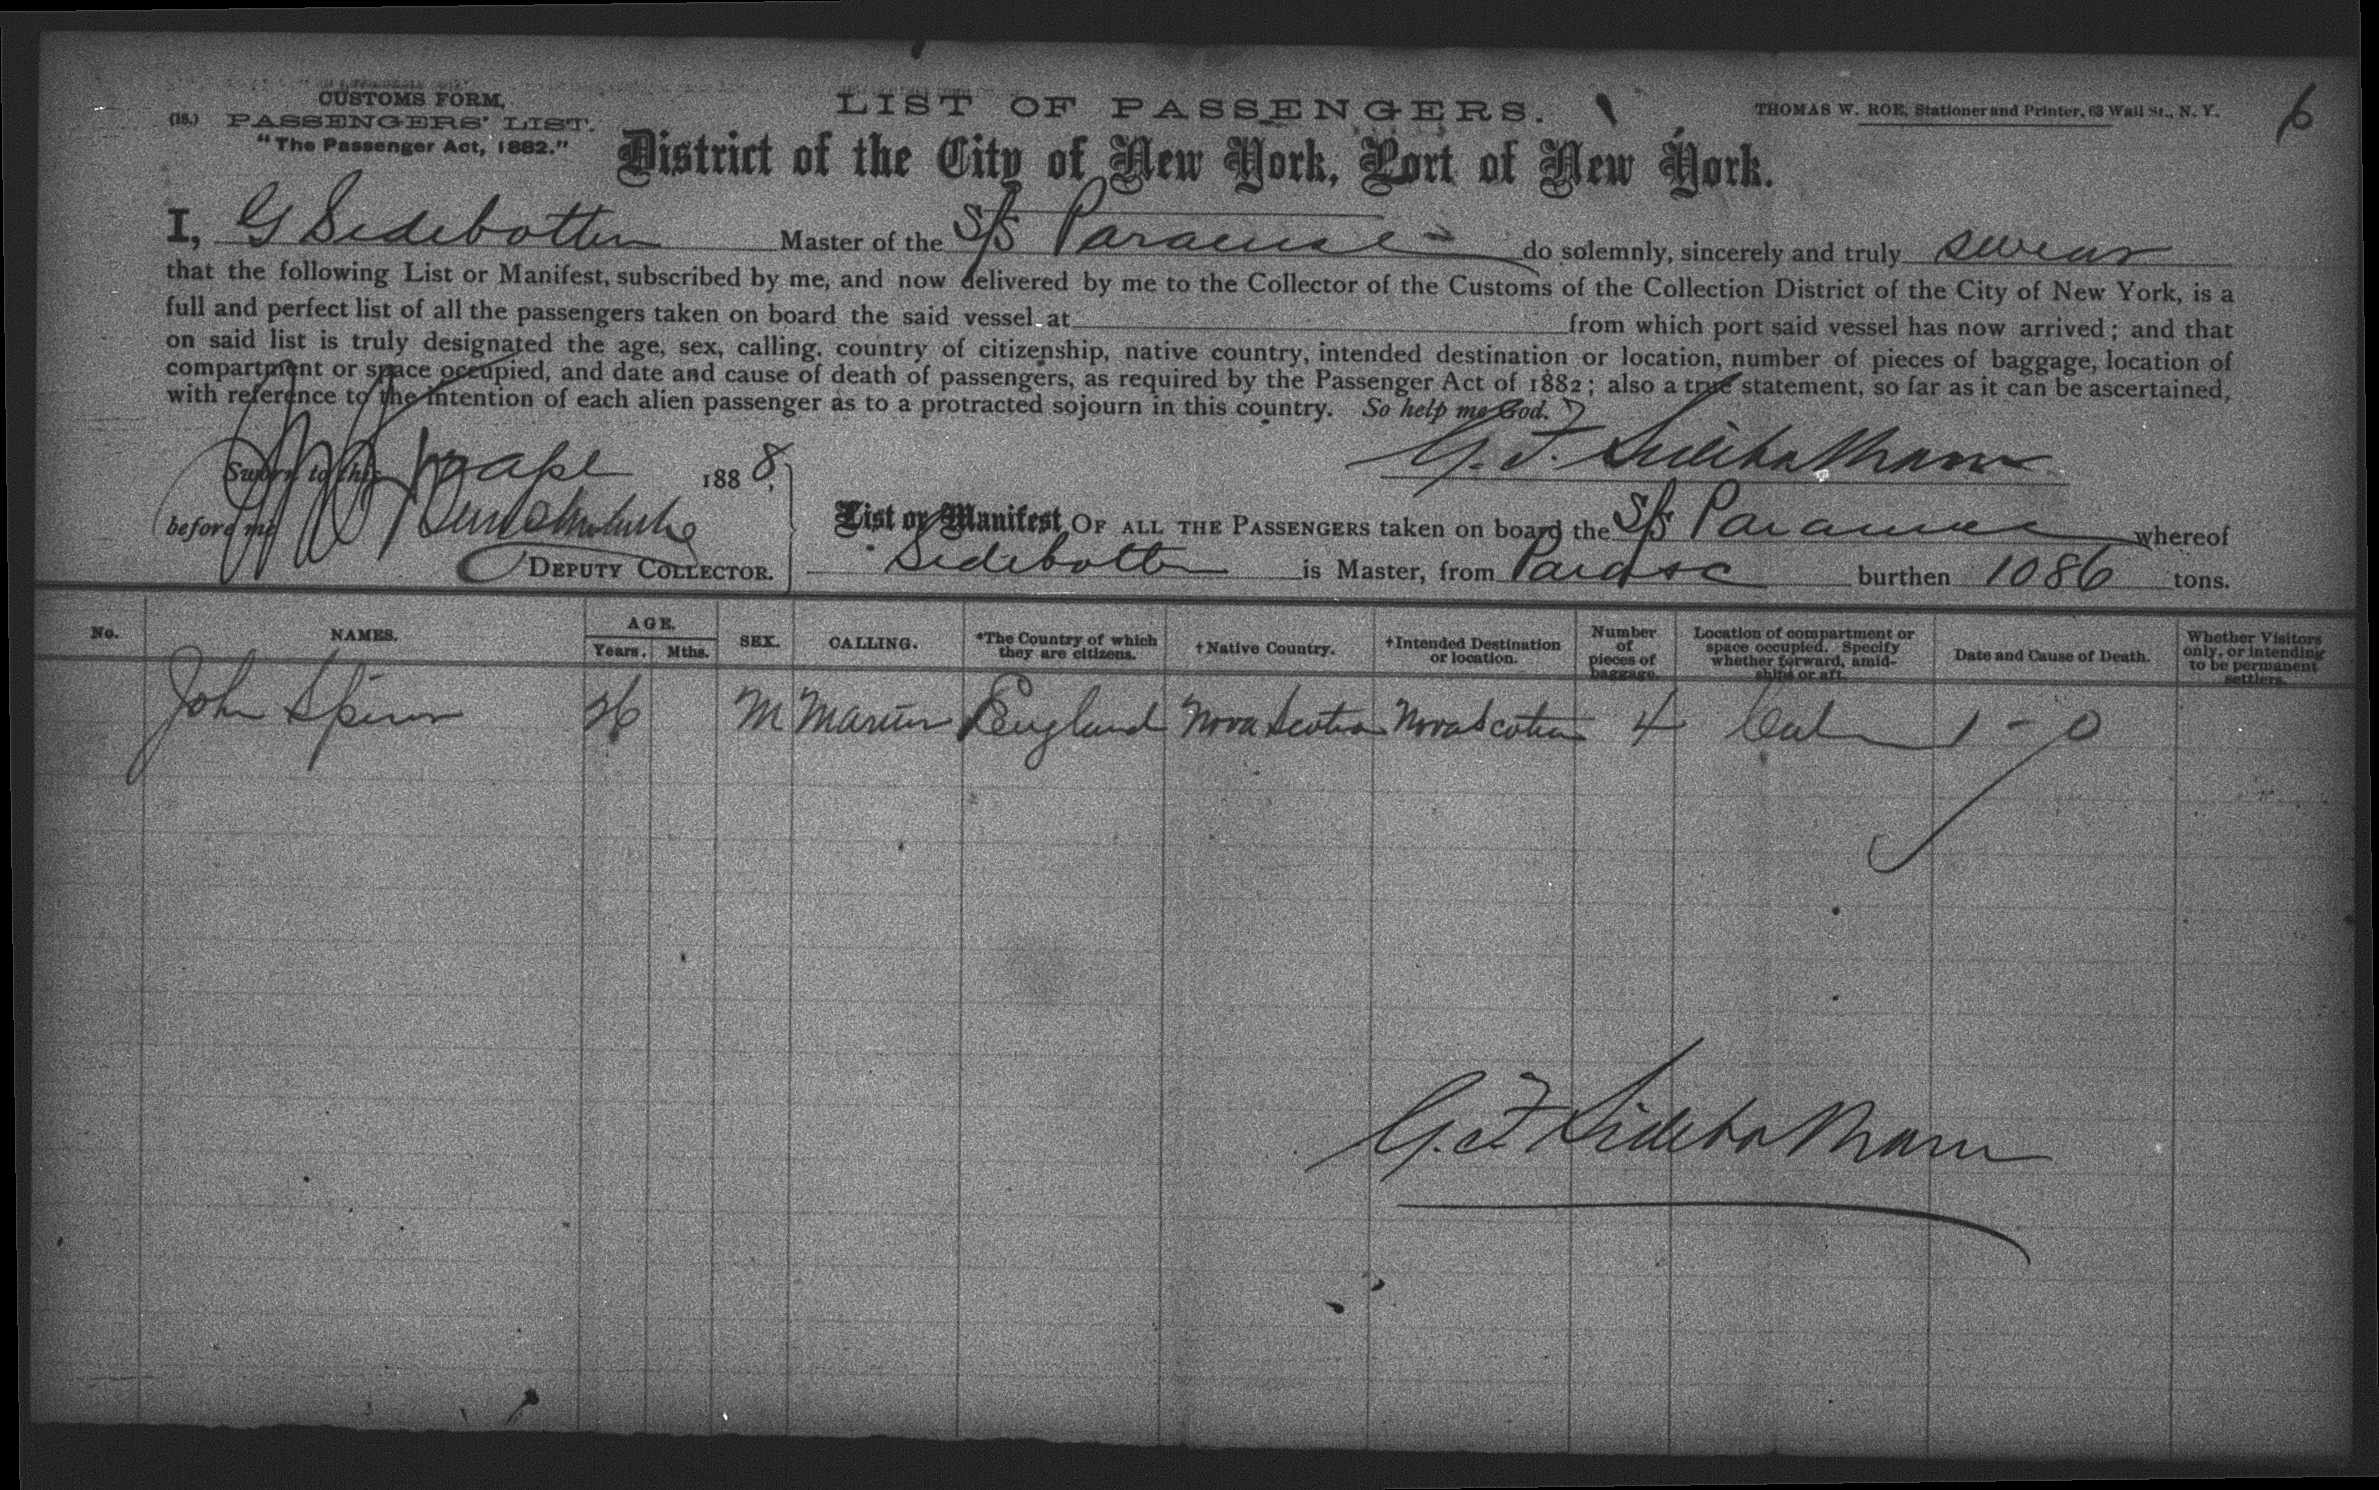 CUSTOMS FORM,
(18.) PASSENGERS' LIST.
"The Passenger Act, 1882."
LIST OF PASSENGERS.
THOMAS W. ROE, Stationer and Printer, 63 Wall St., N. Y.
6
District of the City of New York, Port of New York.
I, G Sidebottom Master of the S/S do solemnly, sincerely and truly swear
that the following List or Manifest, subscribed by me, and now delivered by me to the Collector of the Customs of the Collection District of the City of New York, is a
full and perfect list of all the passengers taken on board the said vessel at from which port said vessel has now arrived; and that
on said list is truly designated the age, sex, calling, country of citizenship, native country, intended destination or location, number of pieces of baggage, location of
compartment or space occupied, and date and cause of death of passengers, as required by the Passenger Act of 1882; also a true statement, so far as it can be ascertained,
with reference to the intention of each alien passenger as to a protracted sojourn in this country. So help me God.
G. F. Sidebotham
Sworn to this 1888,
before me
DEPUTY COLLECTOR.
List or Manifest OF ALL THE PASSENGERS taken on board the S/S whereof
Sidebottom is Master, from burthen 1086 tons.
No. NAMES. AGE. Years. Mths. SEX. CALLING. *The Country of which they are citizens. †Native Country. †Intended Destination or location. Number of pieces of baggage. Location of compartment or space occupied. Specify whether forward, amidships or aft. Date and Cause of Death. Whether Visitors only, or intending to be permanent settlers.
John 26 M Mariner England Nova Scotia Nova Scotia 4 1 - 0
G. F. Sidebotham